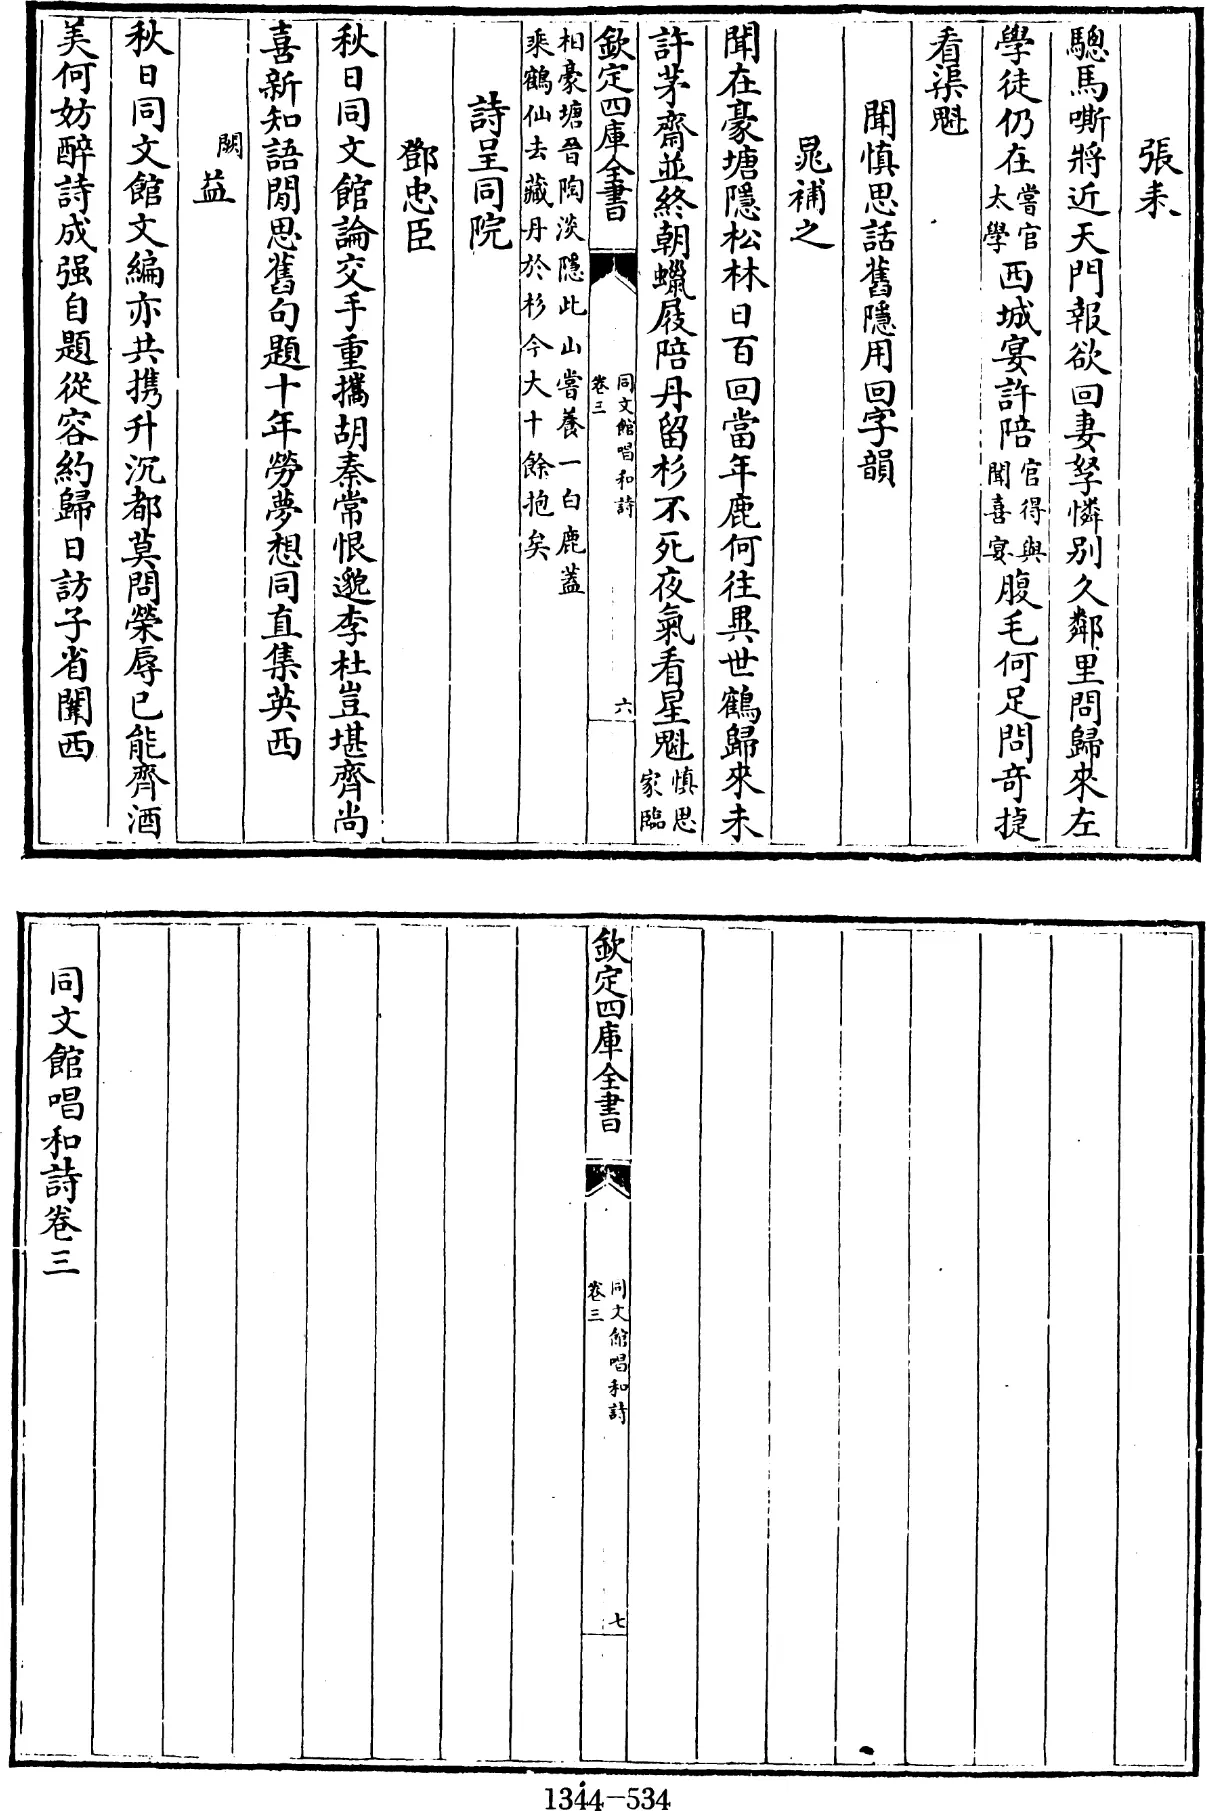 張耒
驄馬嘶將近天門報欲回妻孥憐别久鄰里問歸來左
學徒仍在嘗官太學西城宴許陪官得與聞喜宴腹毛何足問奇㨗
看渠魁
聞慎思話舊隱用回字韻
晁補之
聞在豪塘隱松林日百回當年鹿何往異世鶴歸來未
許茅齋並終朝蠟屐陪丹留杉不死夜氣看星魁慎思家臨
欽定四庫全書
同文館唱和詩
卷三
六
相豪塘晉陶淡隱此山嘗養一白鹿蓋
乘鶴仙去藏丹於杉今大十餘抱矣
詩呈同院
鄧忠臣
秋日同文館論交手重攜胡秦常恨邈李杜豈堪齊尚
喜新知語閒思舊句題十年勞夢想同直集英西
闕益
秋日同文館文編亦共攜升沉都莫問榮辱已能齊酒
美何妨醉詩成强自題從容約歸日訪子省闈西
欽定四庫全書
同文館唱和詩
卷三
七
同文館唱和詩卷三
1344-534